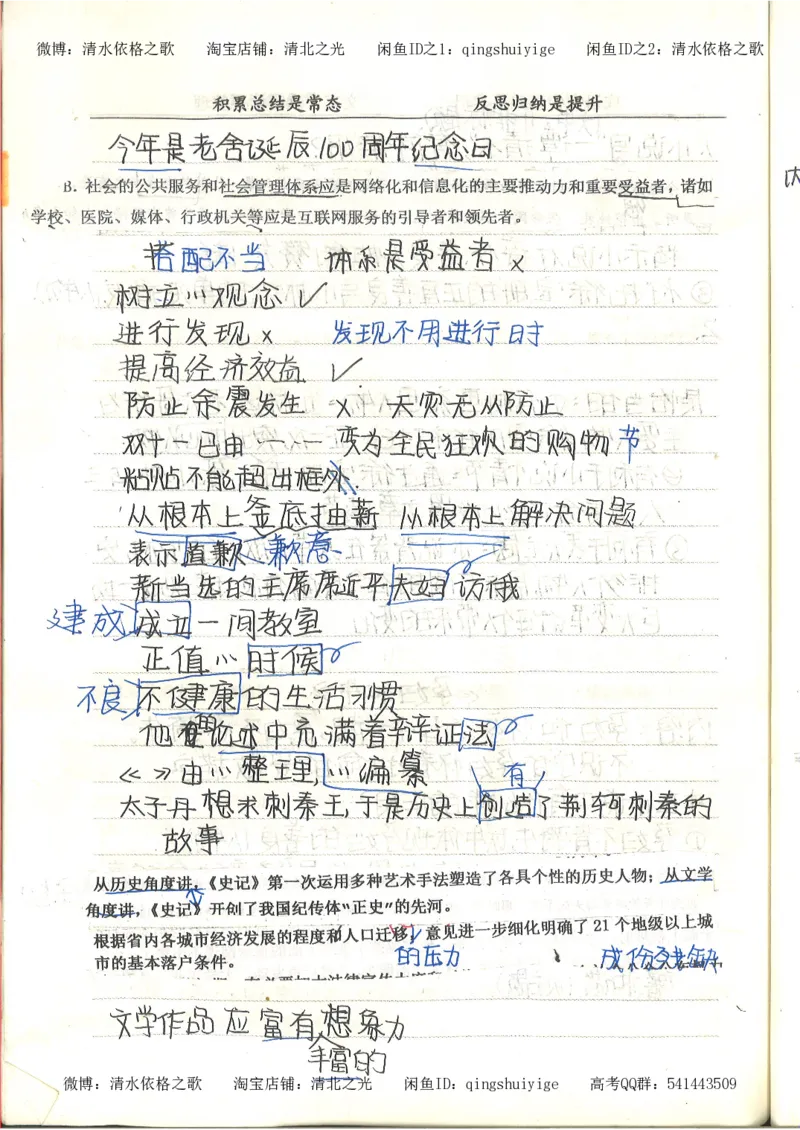 微博：清水依格之歌 淘宝店铺：清北之光 闲鱼ID之1：qingshuiyige 闲鱼ID之2：清水依格之歌
积累总结是常态 反思归纳是提升
今年是老舍诞辰100周年纪念日
B．社会的公共服务和社会管理体系应是网络化和信息化的主要推动力和重要受益者，诸如
学校、医院、媒体、行政机关等应是互联网服务的引导者和领先者。
搭配不当 体系是受益者 ×
树立……观念 ✓
进行发现 × 发现不用进行时
提高经济效益 ✓
防止余震发生 × 天灾无从防止
双十一已由……变为全民狂欢的购物节
粘贴不能超出框外
从根本上釜底抽薪 从根本上解决问题
表示道歉 歉意
新当选的主席席近平夫妇访俄
建成 成立一间教室
正值……时候
不良 不健康的生活习惯
他的论述中充满着辩证法
《 》由……整理，……编纂
有
太子丹想求刺秦王，于是历史上创造了荆轲刺秦的
故事
从历史角度讲，《史记》第一次运用多种艺术手法塑造了各具个性的历史人物；从文学
角度讲，《史记》开创了我国纪传体“正史”的先河。
根据省内各城市经济发展的程度和人口迁移，意见进一步细化明确了 21 个地级以上城
市的基本落户条件。 的压力 成份残缺
文学作品应富有想象力
丰富的
微博：清水依格之歌 淘宝店铺：清北之光 闲鱼ID：qingshuiyige 高考QQ群：541443509